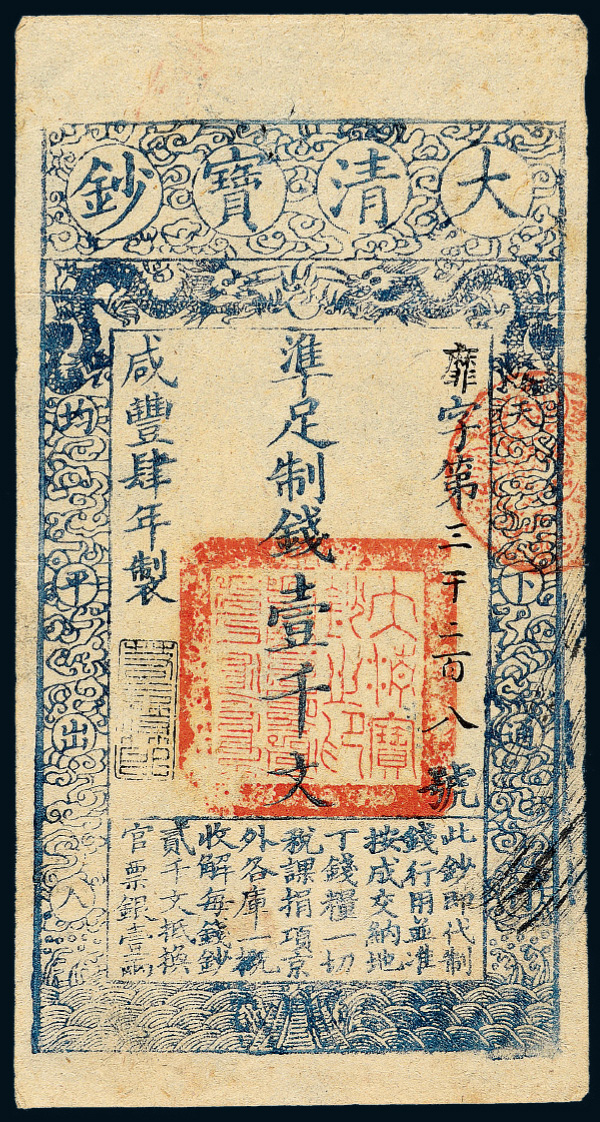 大清寶鈔
天下通行
均平出入
靡字第三千二百八號
準足制錢壹千文
咸豐肆年製
大清寶鈔之印
此鈔即代制
錢行用並准
按成交納地
丁錢糧一切
稅課捐項京
外各庫一槪
收解每錢鈔
貳千文抵換
官票銀壹兩